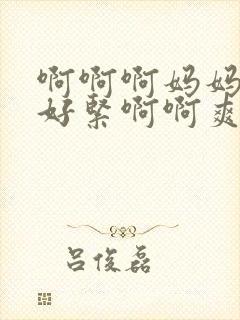 啊啊啊妈妈
好緊啊啊爽
吕俊磊